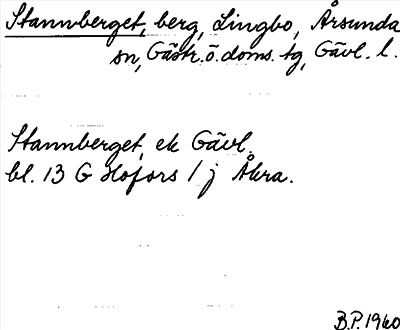 Stannberget, berg, Lingbo, Årsunda
sn, Gästr. ö. doms. tg, Gävl. l.
Stannberget, ek Gävl.
bl. 13 G Hofors 1 j Åkra.
B.P. 1960